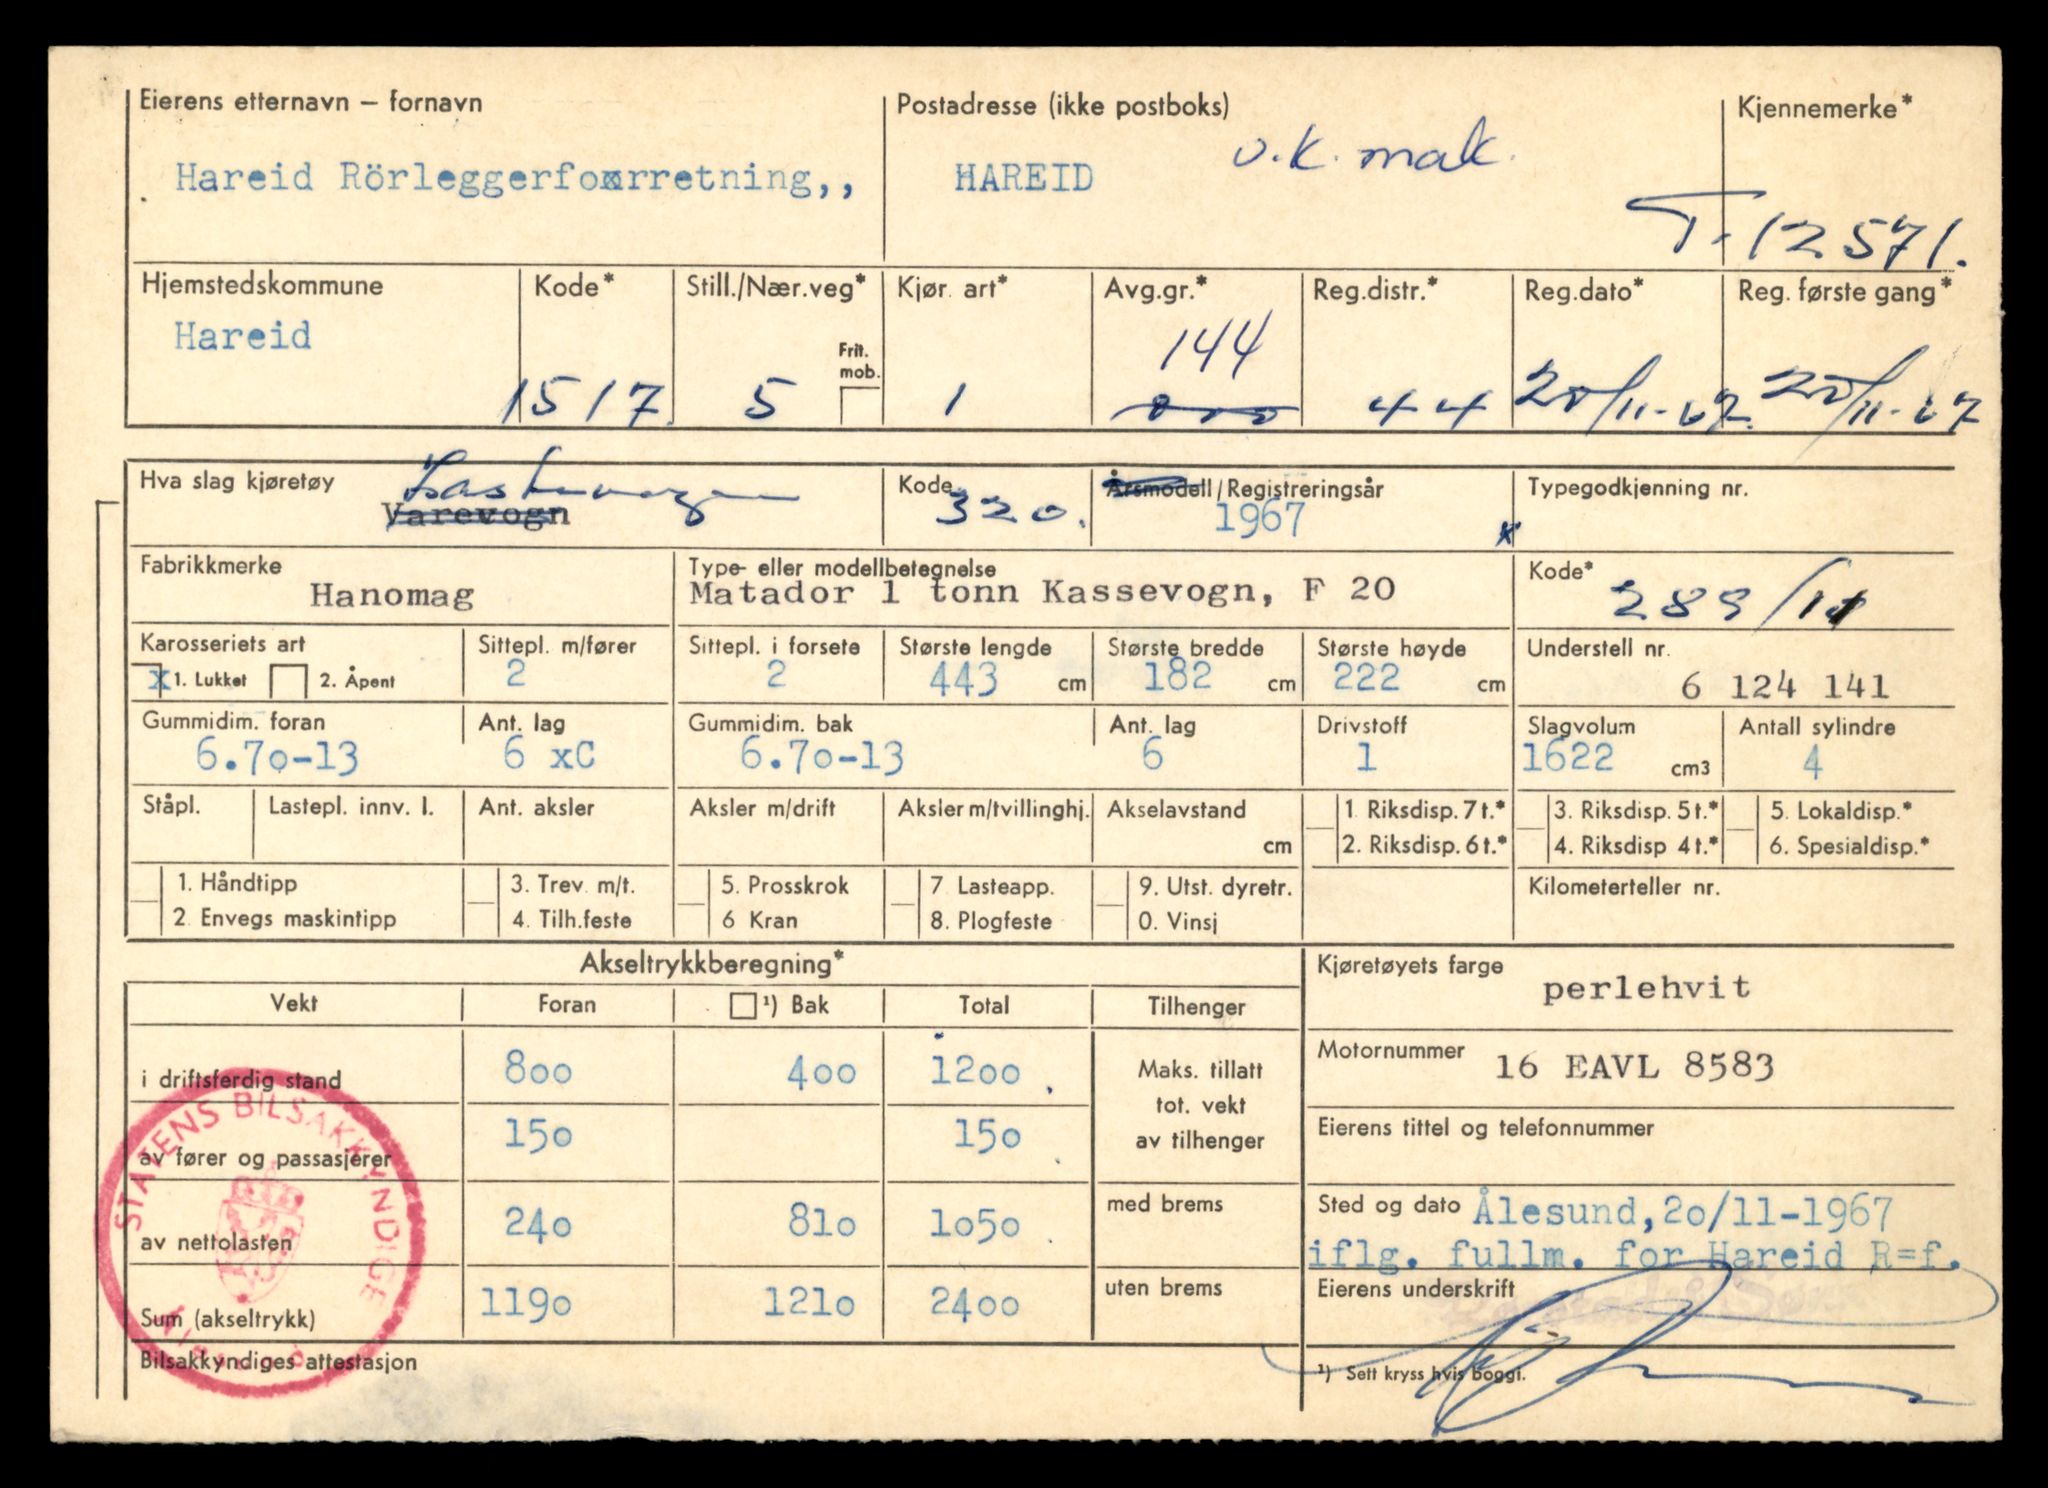 Eierens etternavn – fornavn Postadresse (ikke postboks) Kjennemerke*
Hareid Rörleggerfoxrretning,, HAREID v.k. mak.
T-12571.
Hjemstedskommune Kode* Still./Nær.veg* Kjør. art* Avg.gr.* Reg.distr.* Reg.dato* Reg. første gang*
Hareid Frit. mob. 144
1517 5 1 000 44 20/11-67. 20/11-67
Hva slag kjøretøy Lastevogn Kode Årsmodell/Registreringsår Typegodkjenning nr.
Varevogn 320. 1967 x
Fabrikkmerke Type- eller modellbetegnelse Kode*
Hanomag Matador 1 tonn Kassevogn, F 20 289/11
Karosseriets art Sittepl. m/fører Sittepl. i forsete Største lengde Største bredde Største høyde Understell nr.
x 1. Lukket 2. Åpent 2 2 443 cm 182 cm 222 cm 6 124 141
Gummidim. foran Ant. lag Gummidim. bak Ant. lag Drivstoff Slagvolum Antall sylindre
6.70-13 6 xC 6.70-13 6 1 1622 cm3 4
Ståpl. Lastepl. innv. l. Ant. aksler Aksler m/drift Aksler m/tvillinghj. Akselavstand 1 Riksdisp. 7 t.* 3. Riksdisp. 5 t.* 5. Lokaldisp.*
cm 2. Riksdisp. 6 t.* 4. Riksdisp 4 t.* 6. Spesialdisp.*
1. Håndtipp 3. Trev. m/t. 5. Prosskrok 7 Lasteapp. 9. Utst. dyretr. Kilometerteller nr.
2 Envegs maskintipp 4. Tilh.feste 6 Kran 8. Plogfeste 0. Vinsj
Akseltrykkberegning* Kjøretøyets farge
perlehvit
Vekt Foran ¹) Bak Total Tilhenger
i driftsferdig stand 800 400 1200 Maks. tillatt tot. vekt av tilhenger Motornummer 16 EAVL 8583
av fører og passasjerer 150 150 Eierens tittel og telefonnummer
av nettolasten 240 810 1050 med brems Sted og dato Ålesund, 20/11-1967
iflg. fullm. for Hareid R=f.
Sum (akseltrykk) 1190 1210 2400 uten brems Eierens underskrift
Bilsakkyndiges attestasjon ¹) Sett kryss hvis boggi.
STATENS BILSAKKYNDIGE